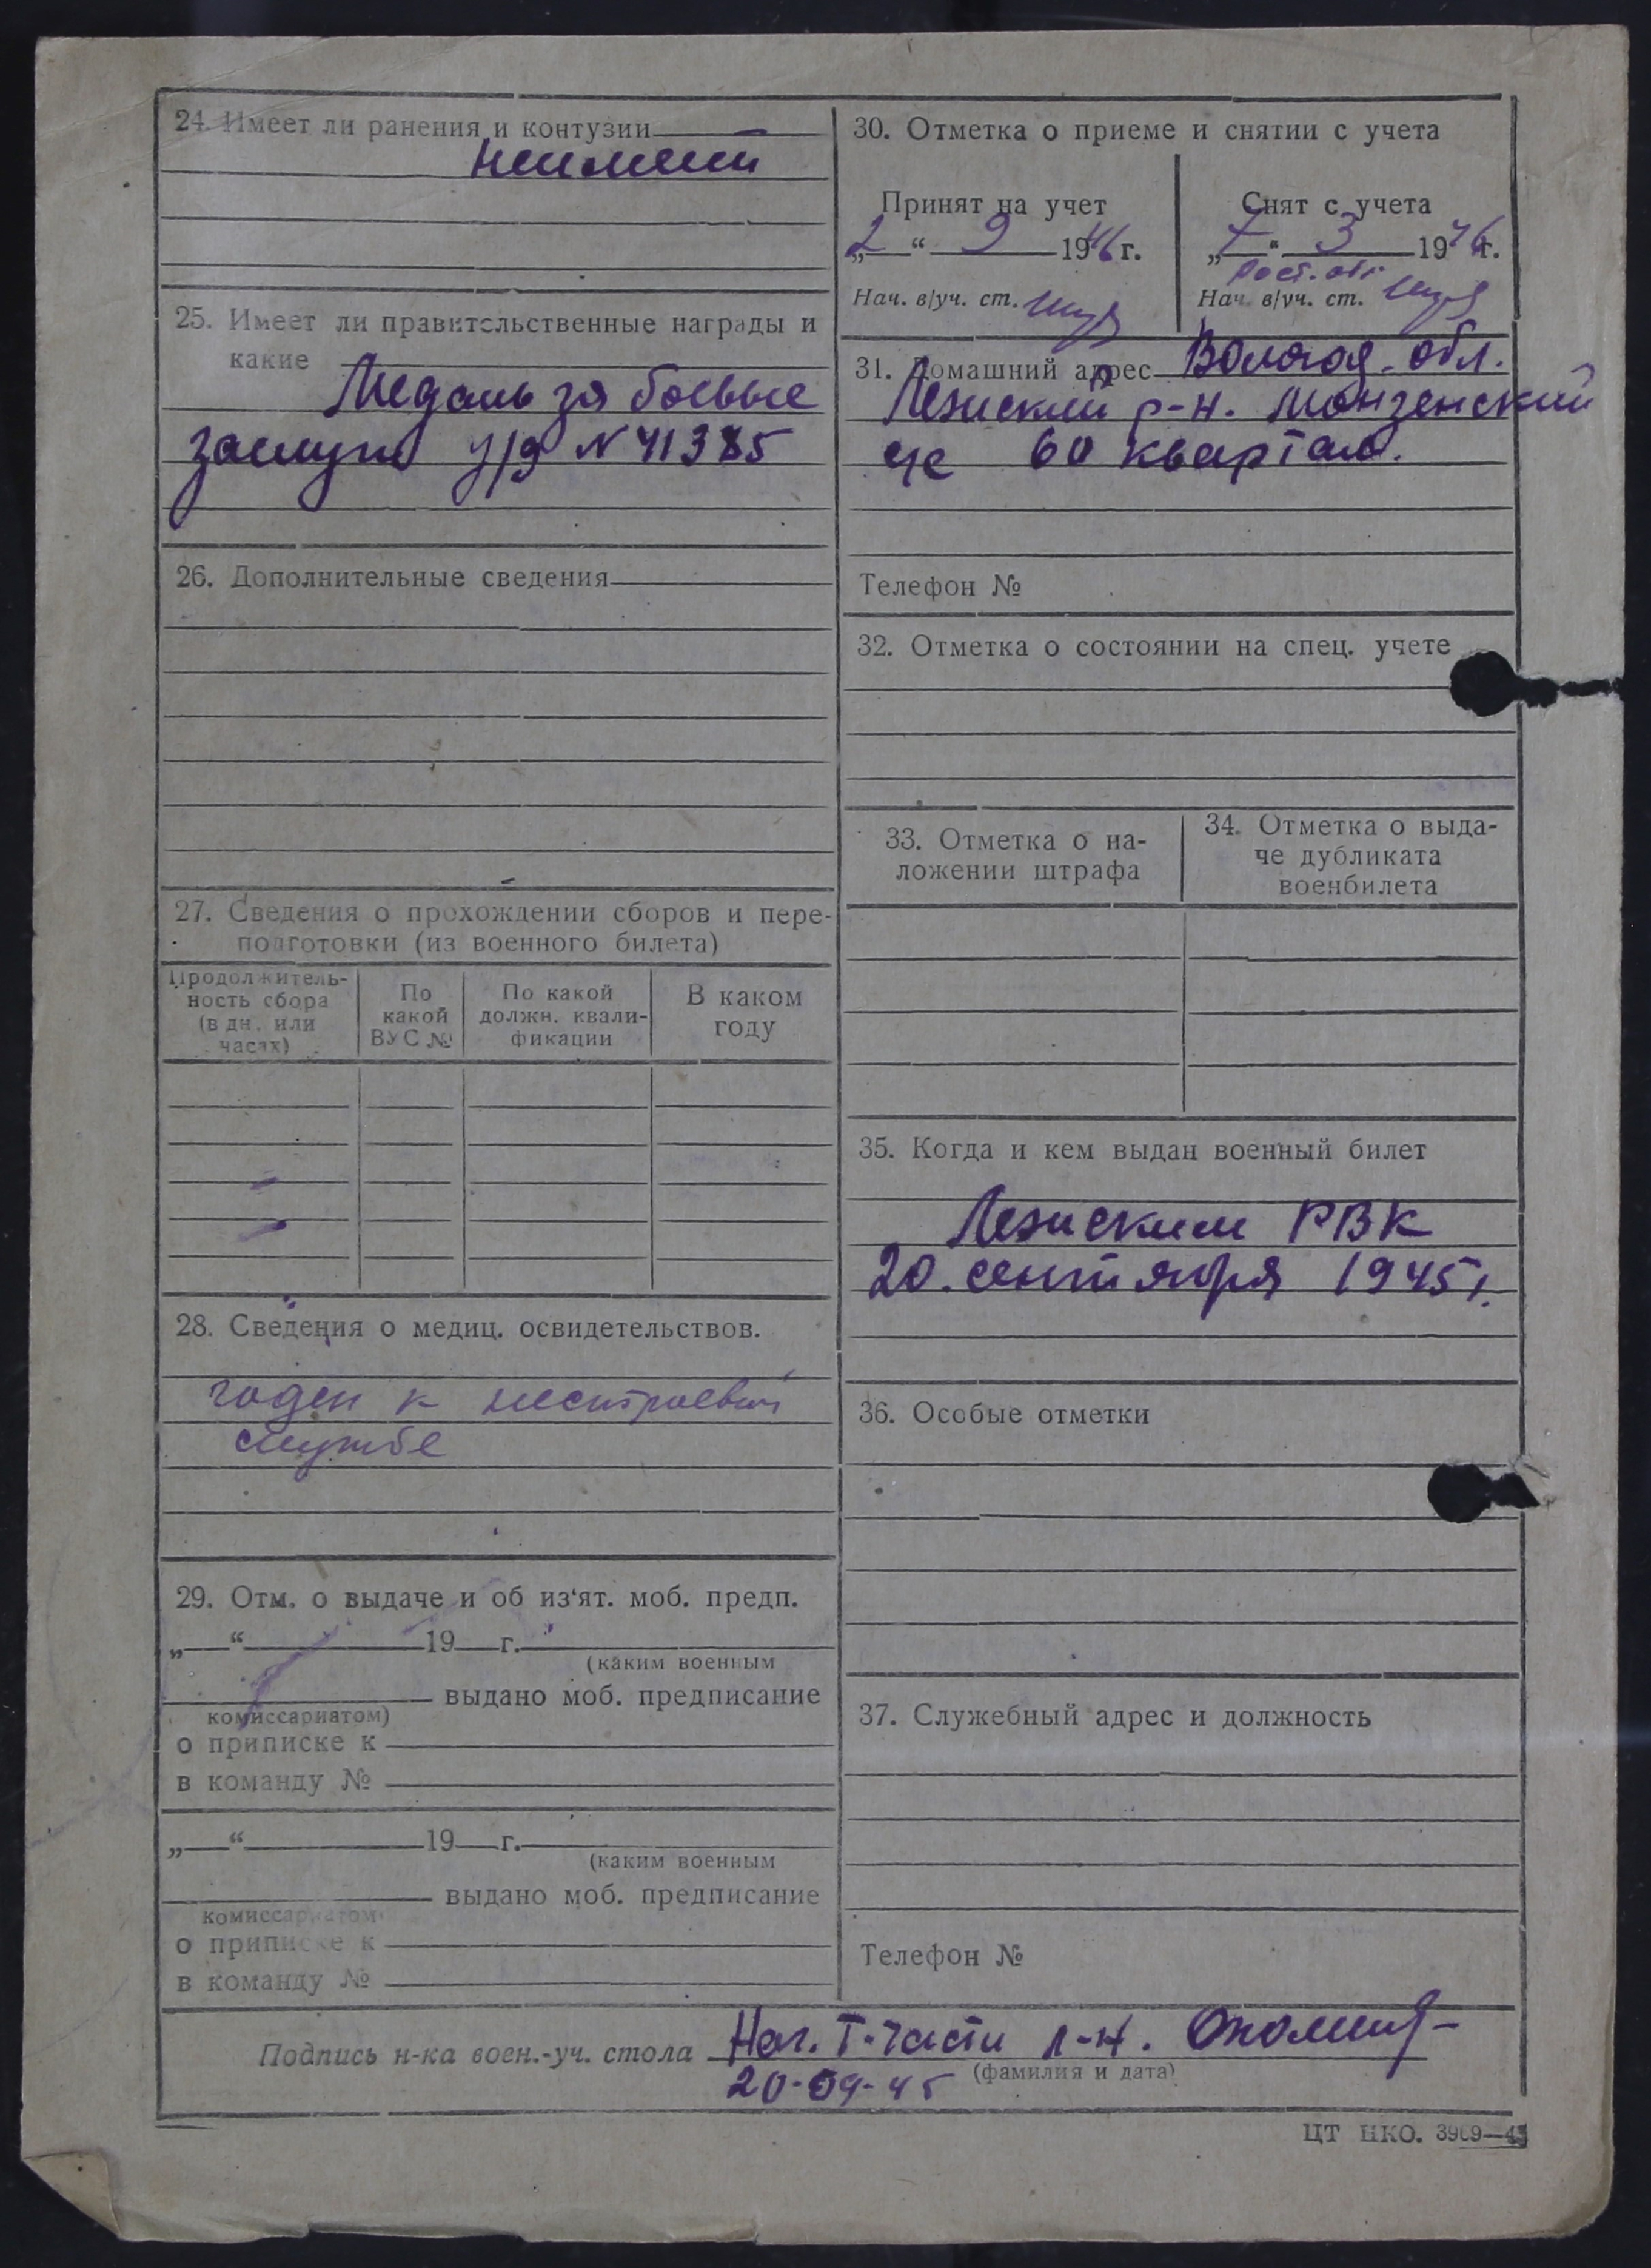 24. Имеет ли ранения и контузии
неимеет
25. Имеет ли правительственные награды и
какие
Медаль за боевые
заслуги у/д N 41385
26. Дополнительные сведения
27. Сведения о прохождении сборов и пере-
подготовки (из военного билета)
Продолжитель-
ность сбора
(в дн. или
часах)
По
какой
ВУС №
По какой
должн. квали-
фикации
В каком
году
28. Сведения о медиц. освидетельствов.
годен к нестроевой
службе
29. Отм. о выдаче и об из‘ят. моб. предп.
„ “ 19 г.
(каким военным
выдано моб. предписание
комиссариатом)
о приписке к
в команду №
„ “ 19 г.
(каким военным
выдано моб. предписание
комиссариатом)
о приписке к
в команду №
30. Отметка о приеме и снятии с учета
Принят на учет
„2“ 9 1946 г.
Нач. в/уч. ст.
Снят с учета
„7“ 3 1946 г.
Рост. обл.
Нач. в/уч. ст.
31. Домашний адрес Вологод. обл.
р-н. Монзенский
60 квартал.
Телефон №
32. Отметка о состоянии на спец. учете
33. Отметка о на-
ложении штрафа
34. Отметка о выда-
че дубликата
военбилета
35. Когда и кем выдан военный билет
РВК
20. сентября 1945 г.
36. Особые отметки
37. Служебный адрес и должность
Телефон №
Подпись н-ка воен.-уч. стола Нач. I-части л-н.
(фамилия и дата)
20-09-45
ЦТ НКО. 3969—45